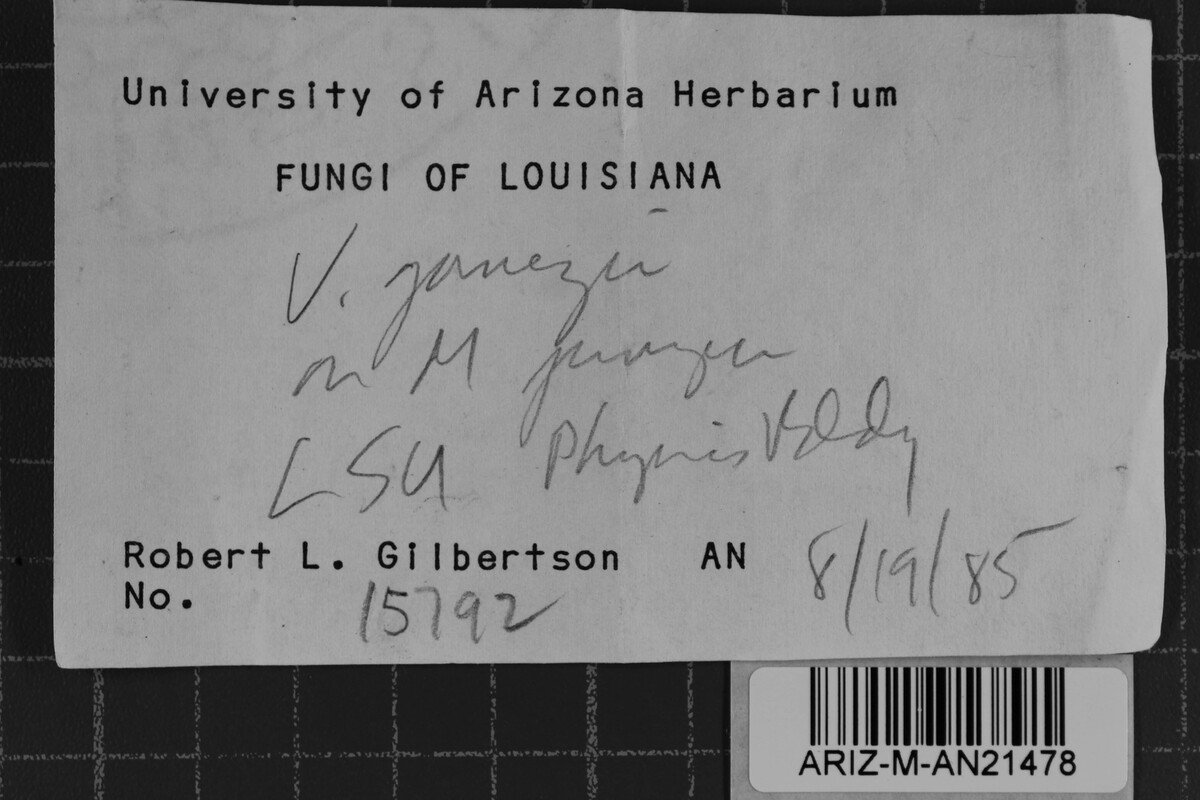 University of Arizona Herbarium
FUNGI OF LOUISIANA
V.
on M
LSU Physics Bldg
Robert L. Gilbertson AN 8/19/85
No. 15792
ARIZ-M-AN21478